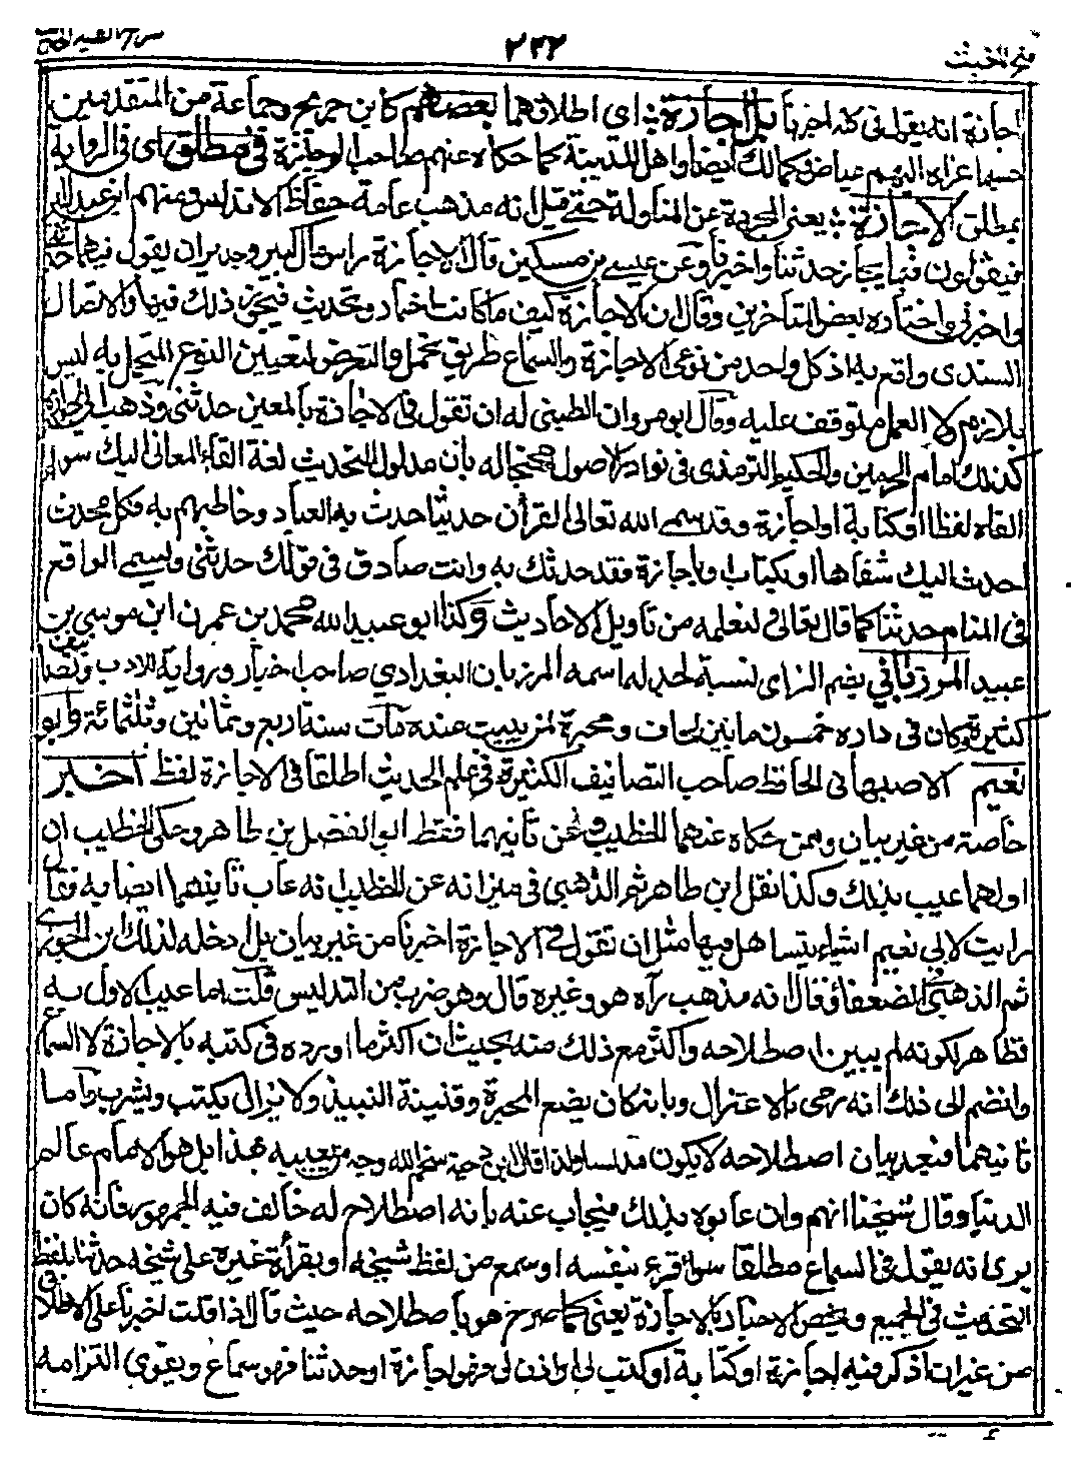 فتح المغيث
٢٢٢
اجازة انه يقول في كله اخبرنا بالاجازة اى اطلاقهما بعضهم كابن جريج وجماعة من المتقدمين
حسبما عزاه اليهم عياض وكمالك ايضا واهل المدينة كما حكاه عنهم صاحب الوجازة في مطلق اى في الرواية
بمطلق الاجازة يعنى المجردة عن المناولة حتى قيل انه مذهب عامة حفاظ الاندلس ومنهم ابن عبد البر
فيقولون فيما يجاز حدثنا واخبرنا وعن عيسى بن مسكين قال الاجازة راس مال كبير وجدير ان يقول فيها حدثني
واخبرني واختاره بعض المتأخرين وقال ان الاجازة كيف ما كانت اخبار وتحديث فيجوز ذلك فيها والاتصال
السندى واقع به اذ كل واحد من نوعى الاجازة والسماع طريق تحمل والتعرض لتعيين النوع المتحمل به ليس
بلازم ولا العمل متوقف عليه وقال ابو مروان الطبني له ان تقول في الاجازة بالمعين حدثني وذهب الى جوازه
كذلك امام الحرمين والحكيم الترمذى في نوادر الاصول محتجا له بان مدلول التحديث لغة القاء المعاني اليك سواء
القاه لفظا او كتابة او اجازة وقد سمى الله تعالى القرآن حديثا حدث به العباد وخاطبهم به فكل محدث
احدث اليك شفاها او بكتاب او باجازة فقد حدثك به وانت صادق في قولك حدثني ويسمى الواقع
في المنام حديثا كما قال تعالى لنعلمه من تأويل الاحاديث وكذا ابو عبيد الله محمد بن عمرن ابن موسى بن
عبيد المرزباني بضم الزاى نسبة لجد له اسمه المرزبان البغدادي صاحب اخبار ورواية للادب وتصانيف
كثيرة وكان في داره خمسون ما بين لحاف ومحبرة لمن يبيت عنده مات سنة اربع وثمانين وثلثمائة وابو
نعيم الاصبهاني الحافظ صاحب التصانيف الكثيرة في علم الحديث اطلقا في الاجازة لفظ اخبر
خاصة من غير بيان وممن حكاه عنهما الخطيب وعن ثانيهما فقط ابو الفضل بن طاهر وحكى الخطيب ان
اولهما عيب بذلك وكذا نقل ابن طاهر ثم الذهبي في ميزانه عن الخطيب انه عاب ثانيهما ايضا به فقال
رايت لابي نعيم اشياء يتساهل فيها مثل ان تقول في الاجازة اخبرنا من غير بيان بل ادخله لذلك ابن الجوزى
ثم الذهبي في الضعفاء فقال انه مذهب رآه هو وغيره قال وهو ضرب من التدليس قلت اما عيب الاول به
فظاهر لكونه لم يبين اصطلاحه واكثر مع ذلك منه بحيث ان اكثر ما اورده في كتبه بالاجازة لا السماع
وانضم الى ذلك انه رمى بالاعتزال وبانه كان يضع المحبرة وقنينة النبيذ ولا يزال يكتب ويشرب واما
ثانيهما فبعد بيان اصطلاحه لا يكون مدلسا ولذا قال ابن دحية سخم الله وجه من يعيبه بهذا بل هو الامام عالم
الدنيا وقال شيخنا انهم وان عابوه بذلك فيجاب عنه بانه اصطلاح له خالف فيه الجمهور فانه كان
يرى انه يقول في السماع مطلقا سواء قرء بنفسه او سمع من لفظ شيخه او بقرأة غيره على شيخه حدثنا بلفظ
التحديث في الجميع ويخص الاخبار بالاجازة يعنى كما صرح هو باصطلاحه حيث قال اذا قلت اخبرنا على الاطلاق
من غير ان اذكر فيه اجازة او كتابة او كتب لى او اذن لى فهو اجازة او حدثنا فهو سماع ويقوى التزامه